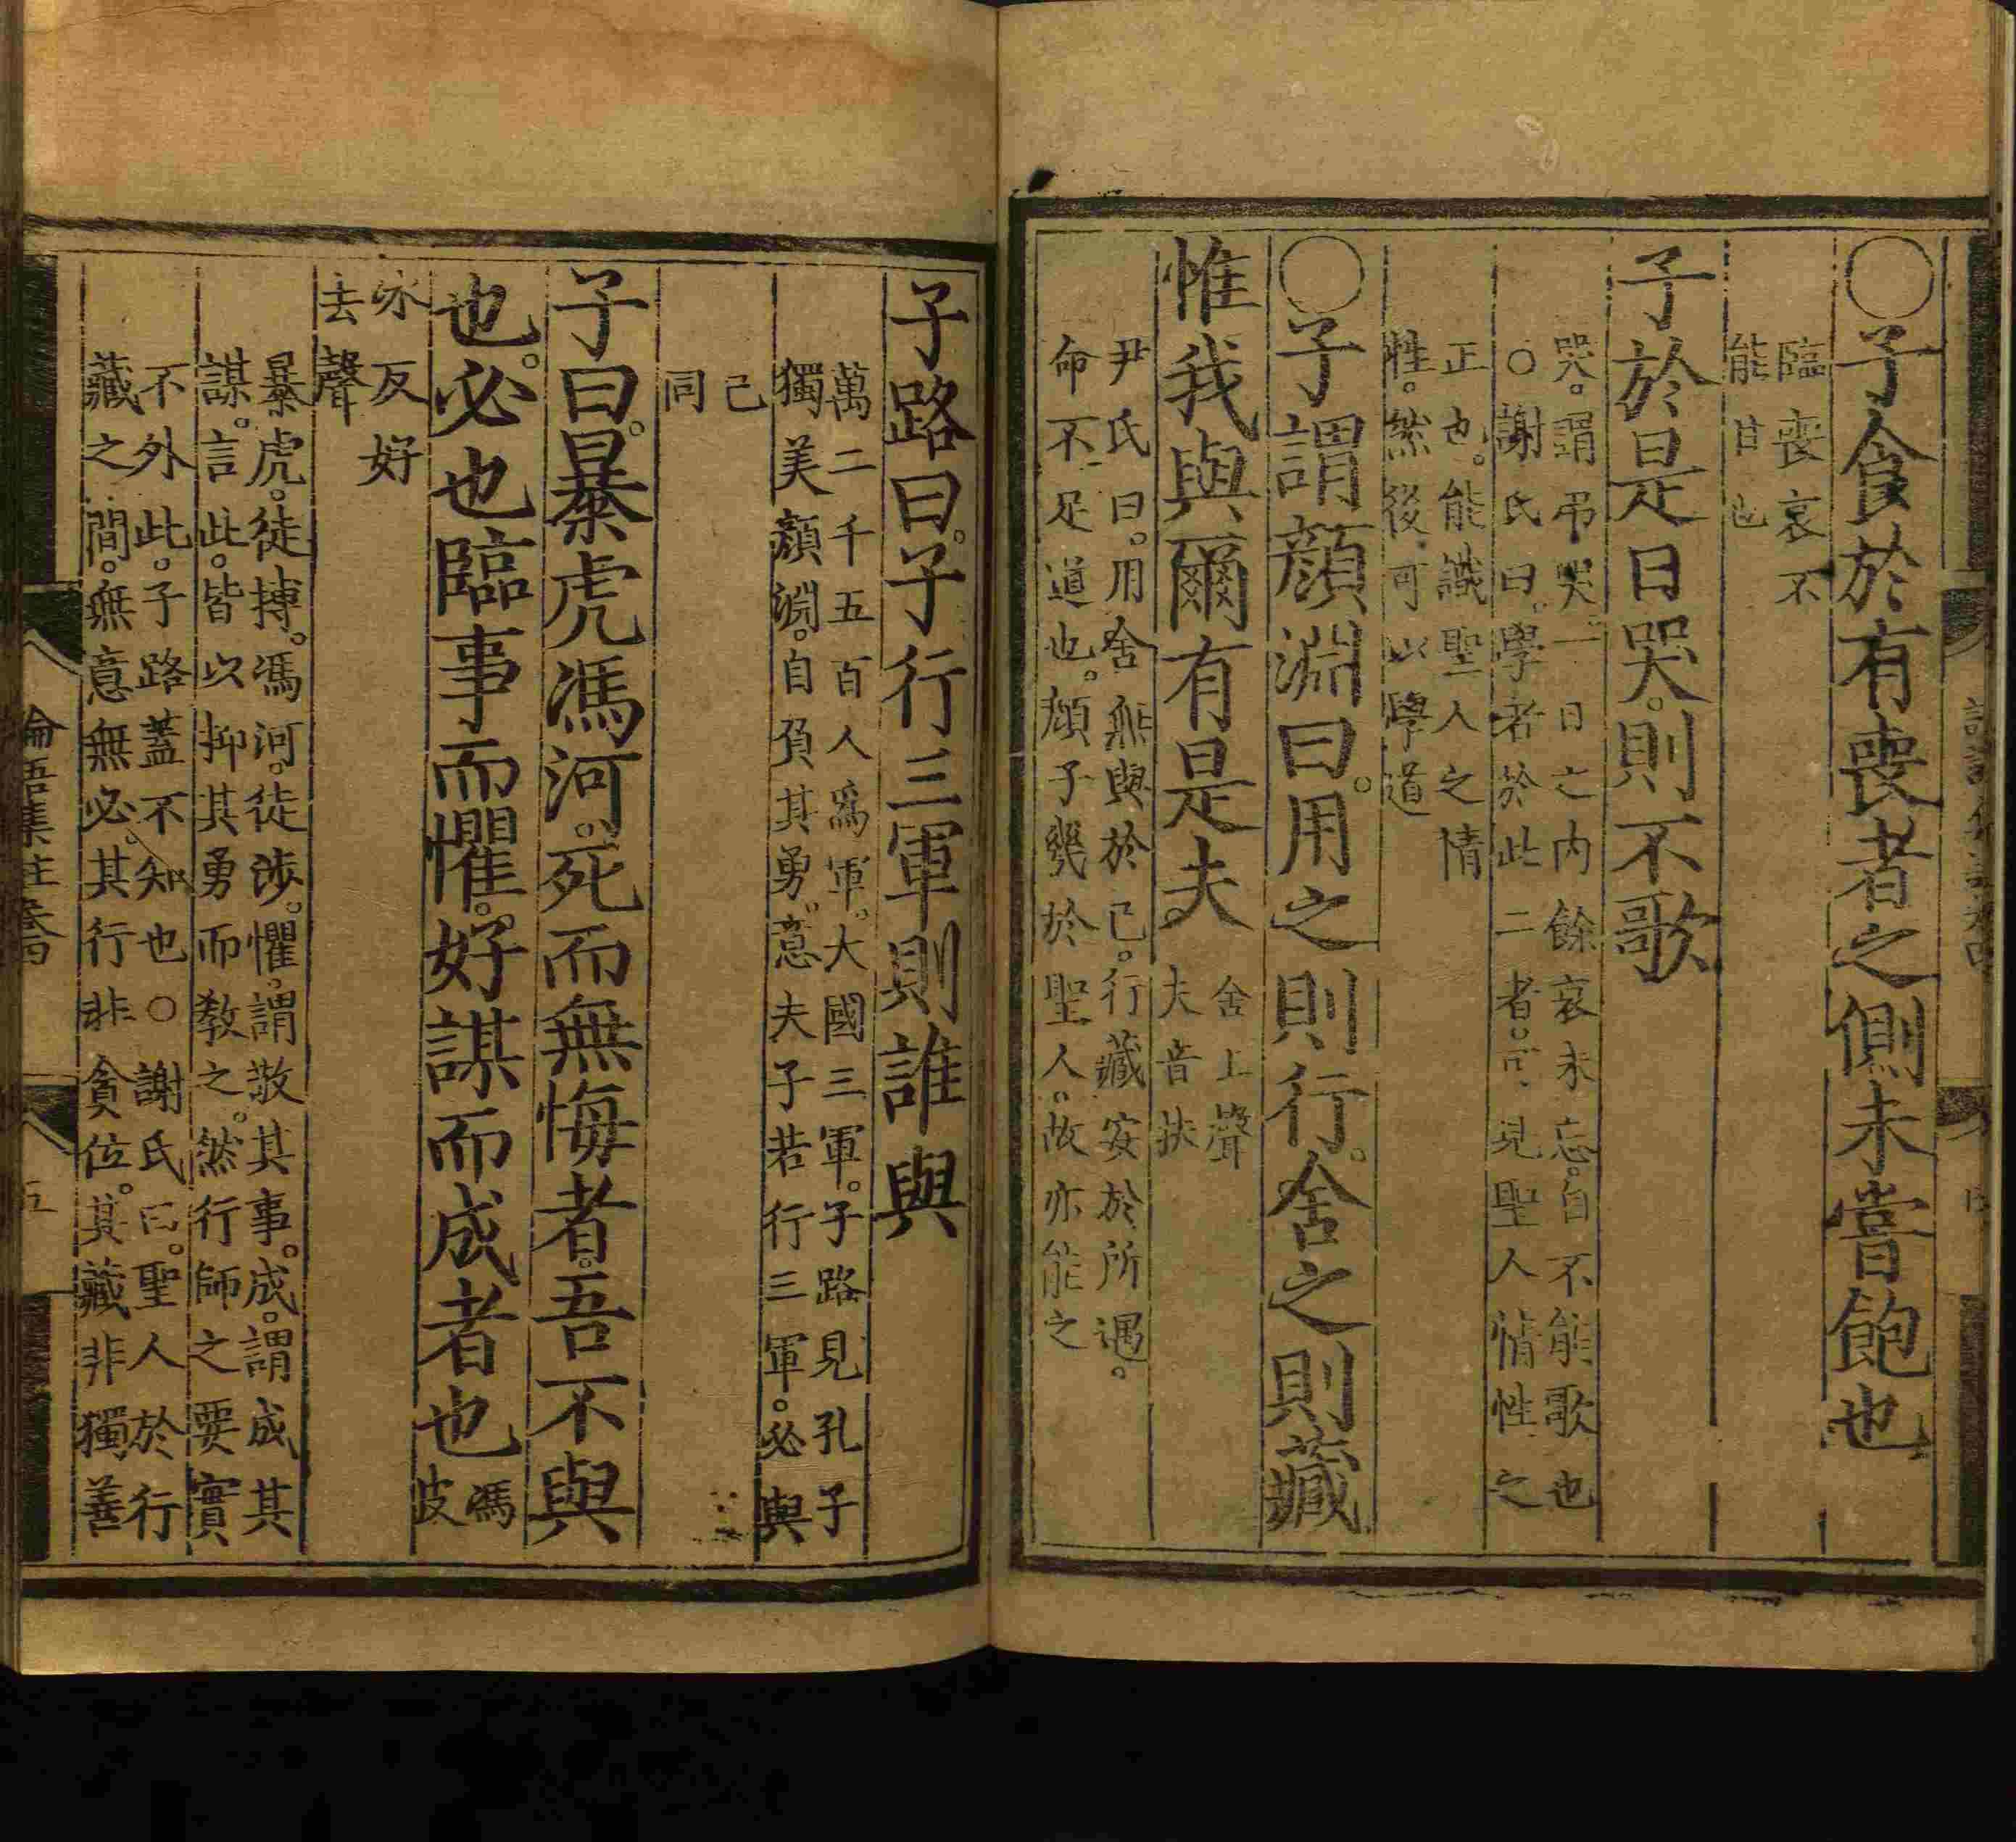 ○子食於有喪者之側未嘗飽也
臨喪哀不
能甘也
子於是日哭。則不歌
哭。謂弔哭。一日之內餘哀未忘。自不能歌也
○謝氏曰。學者於此二者。可見聖人情性之
正也。能識聖人之情
性。然後可以學道
○子謂顏淵曰。用之則行。舍之則藏
惟我與爾有是夫
舍上聲
夫音扶
尹氏曰。用舍無與於己。行藏安於所遇。
命不足道也。顏子幾於聖人。故亦能之
子路曰。子行三軍則誰與
萬二千五百人爲軍。大國三軍。子路見孔子
獨美顏淵。自負其勇。意夫子若行三軍。必與
己
同
子曰。暴虎馮河。死而無悔者。吾不與
也。必也臨事而懼。好謀而成者也
馮
皮
冰反好
去聲
暴虎。徒搏。馮河。徒涉。懼。謂敬其事。成。謂成其
謀。言此。皆以抑其勇而敎之。然行師之要實
不外此。子路蓋不知也○謝氏曰。聖人於行
藏之間。無意無必。其行非貪位。其藏非獨善
論語集註卷四
五